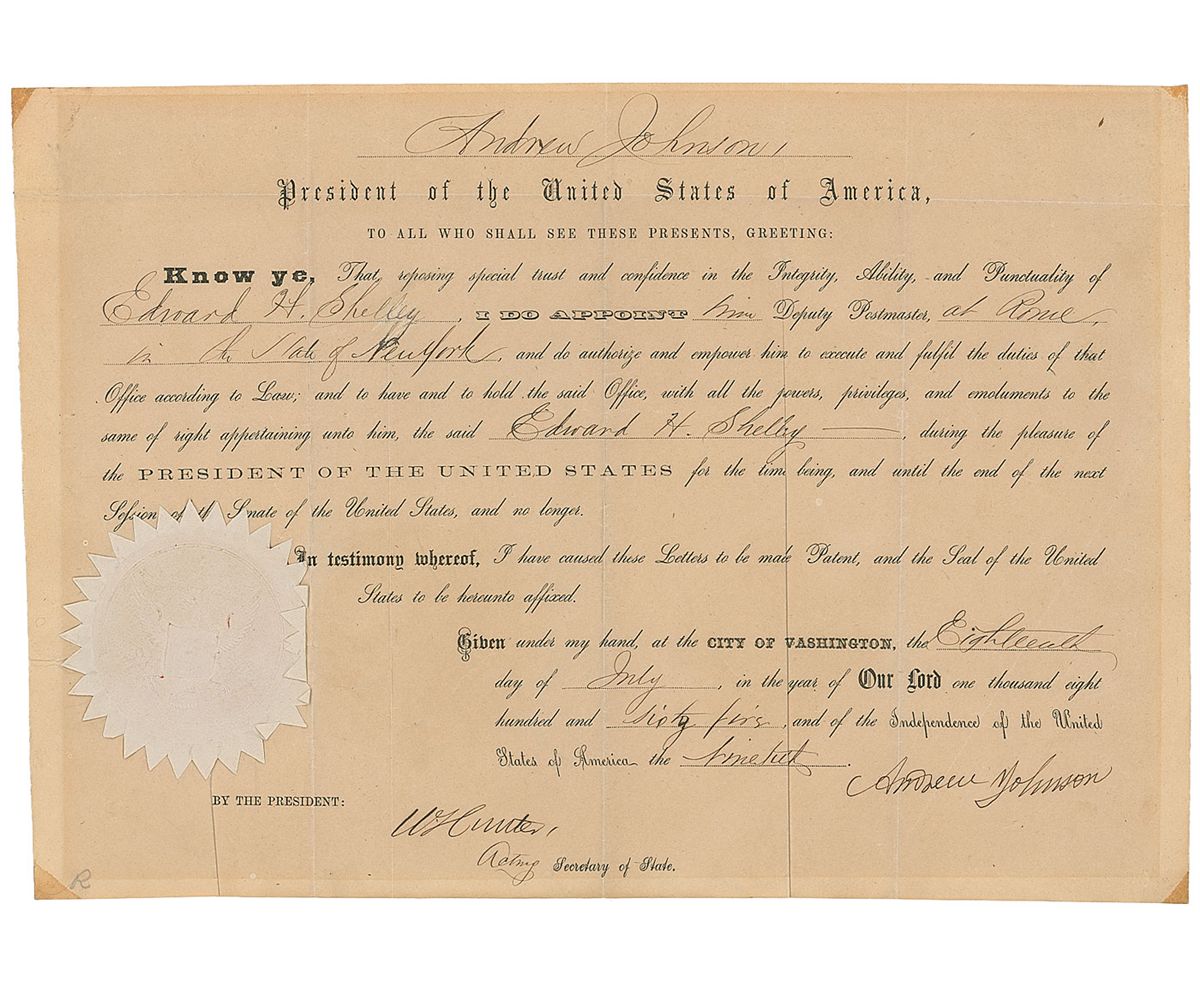 Andrew Johnson,
President of the United States of America,
TO ALL WHO SHALL SEE THESE PRESENTS, GREETING:
Know ye, That, reposing special trust and confidence in the Integrity, Ability, and Punctuality of
Edward H. Shelley, I DO APPOINT him Deputy Postmaster, at Rome,
in the State of New York, and do authorize and empower him to execute and fulfil the duties of that
Office according to Law; and to have and to hold the said Office, with all the powers, privileges, and emoluments to the
same of right appertaining unto him, the said Edward H. Shelley, during the pleasure of
the PRESIDENT OF THE UNITED STATES for the time being, and until the end of the next
Session of the Senate of the United States, and no longer.
In testimony whereof, I have caused these Letters to be made Patent, and the Seal of the United
States to be hereunto affixed.
Given under my hand, at the CITY OF WASHINGTON, the Eighteenth
day of July, in the year of Our Lord one thousand eight
hundred and sixty five, and of the Independence of the United
States of America the Ninetieth.
Andrew Johnson
BY THE PRESIDENT:
W Hunter,
Acting Secretary of State.
R